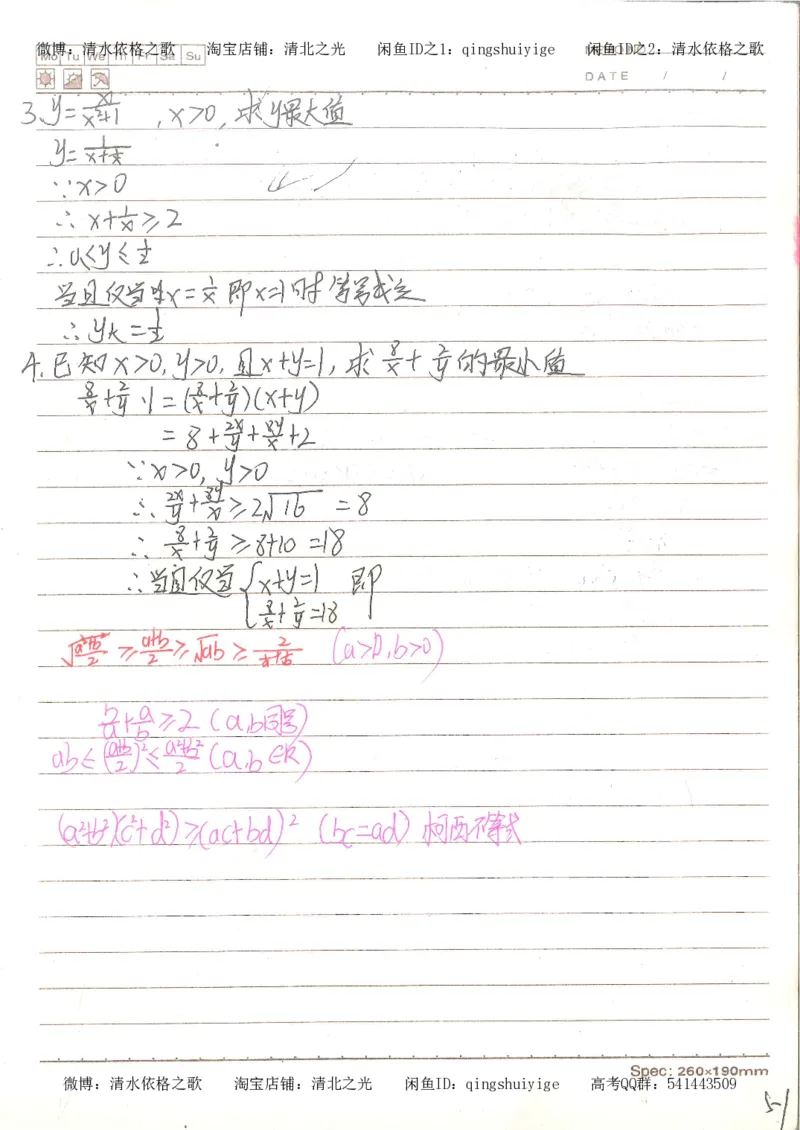 微博：清水依格之歌 淘宝店铺：清北之光 闲鱼ID之1：qingshuiyige 闲鱼ID之2：清水依格之歌
Mo Tu We Th Fr Sa Su
DATE / /
3、y=x/(x²+1) ,x>0,求y最大值
y=1/(x+1/x)
∵x>0
∴x+1/x≥2
∴0<y≤1/2
当且仅当x=1/x即x=1时等号成立
∴y大=1/2
4.已知x>0,y>0,且x+y=1,求8/x+2/y的最小值
8/x+2/y·1=(8/x+2/y)(x+y)
=8+2x/y+8y/x+2
∵x>0,y>0
∴2x/y+8y/x≥2√16=8
∴8/x+2/y≥8+10=18
∴当且仅当{x+y=1 即
8/x+2/y=18
√((a²+b²)/2)≥(a+b)/2≥√ab≥2/(1/a+1/b) (a>0,b>0)
b/a+a/b≥2(a,b同号)
ab≤((a+b)/2)²≤(a²+b²)/2(a,b∈R)
(a²+b²)(c²+d²)≥(ac+bd)² (bc=ad) 柯西不等式
Spec: 260×190mm
微博：清水依格之歌 淘宝店铺：清北之光 闲鱼ID：qingshuiyige 高考QQ群：541443509
5-1